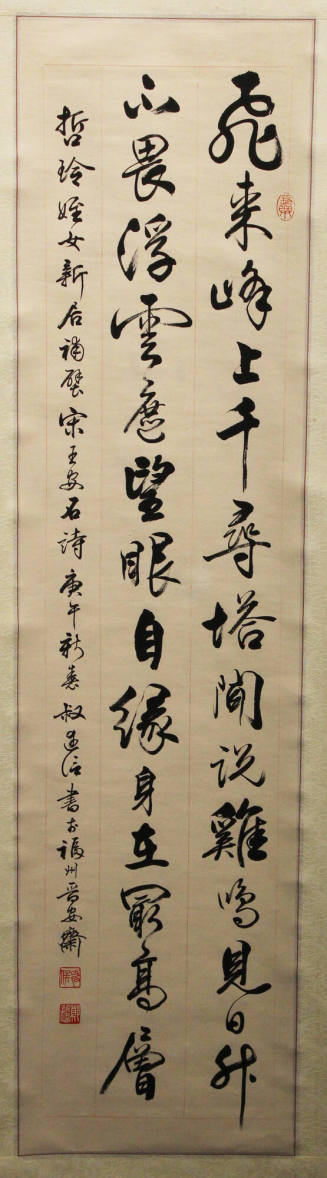 飛来峰上千尋塔聞說雞鳴見日升
不畏浮雲遮望眼自緣身在最高層
哲玲姪女新居補壁宋王安石詩庚午新春叔書於福州晉安齋